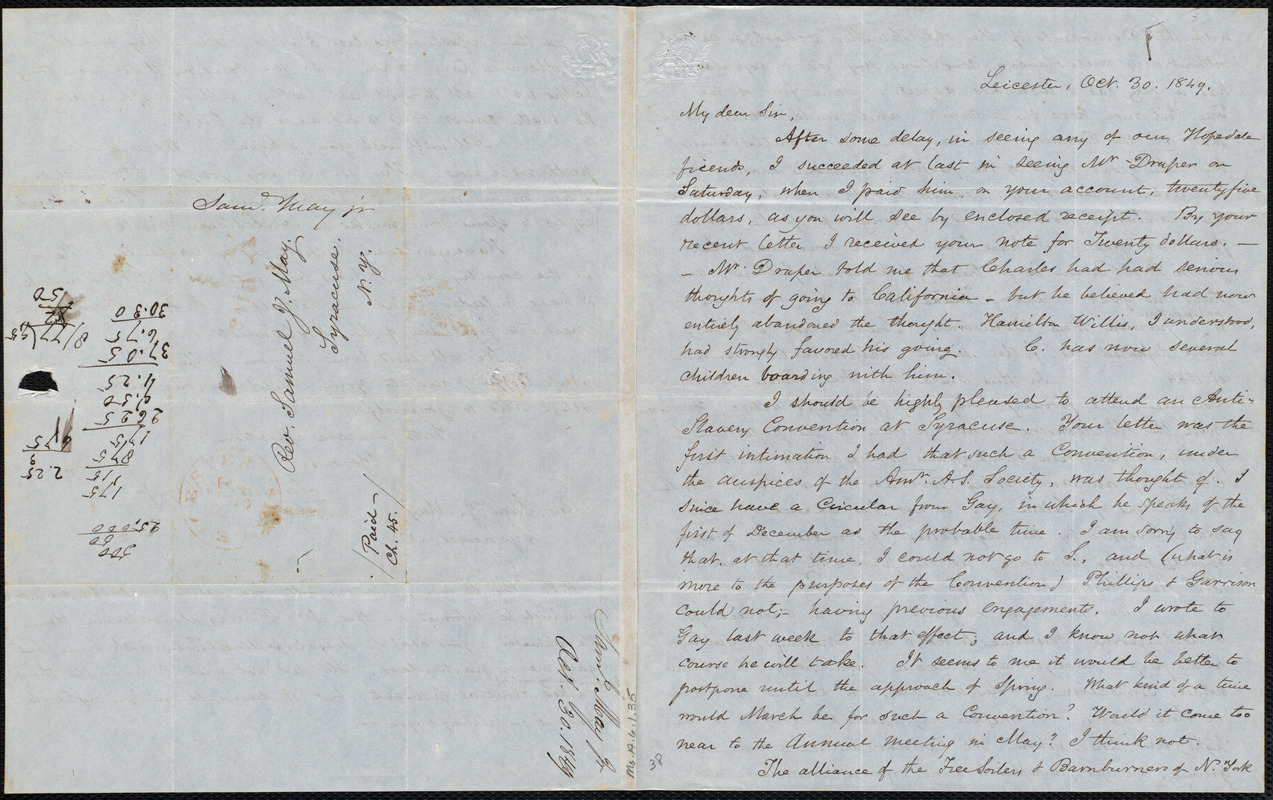 Leicester, Oct. 30. 1849.
My dear Sir,
After some delay, in seeing any of our Hopedale
friends, I succeeded at last in seeing Mr Draper on
Saturday, when I paid him, on your account, twenty five
dollars, as you will see by enclosed receipt. By your
recent letter I received your note for Twenty dollars. —
— Mr. Draper told me that Charles had had serious
thoughts of going to California — but he believed had now
entirely abandoned the thought. Hamilton Willis, I understood,
had strongly favored his going. C. has now several
children boarding with him.
I should be highly pleased to attend an Anti-
Slavery Convention at Syracuse. Your letter was the
first intimation I had that such a Convention, under
the auspices of the Amn. A.S. Society, was thought of. I
since have a Circular from Gay, in which he speaks of the
first of December as the probable time. I am sorry to say
that, at that time, I could not go to S., and (what is
more to the purposes of the Convention) Phillips & Garrison
could not;— having previous engagements. I wrote to
Gay last week to that effect; and I know not what
course he will take. It seems to me it would be better to
postpone until the approach of Spring. What kind of a time
would March be for such a Convention? Would it come too
near to the Annual meeting in May? I think not.
The alliance of the Free Soilers & Barnburners of N. York
Saml. May jr
Rev. Samuel J. May.
Syracuse.
N. Y.
Paid
Ch. 45.
Saml. May Jr
Oct. 30. 1849
Ms. A. 6. 1. 35
38
30.30
6.75
37.05
4.25
9.50
2625
175
875
175
2.25